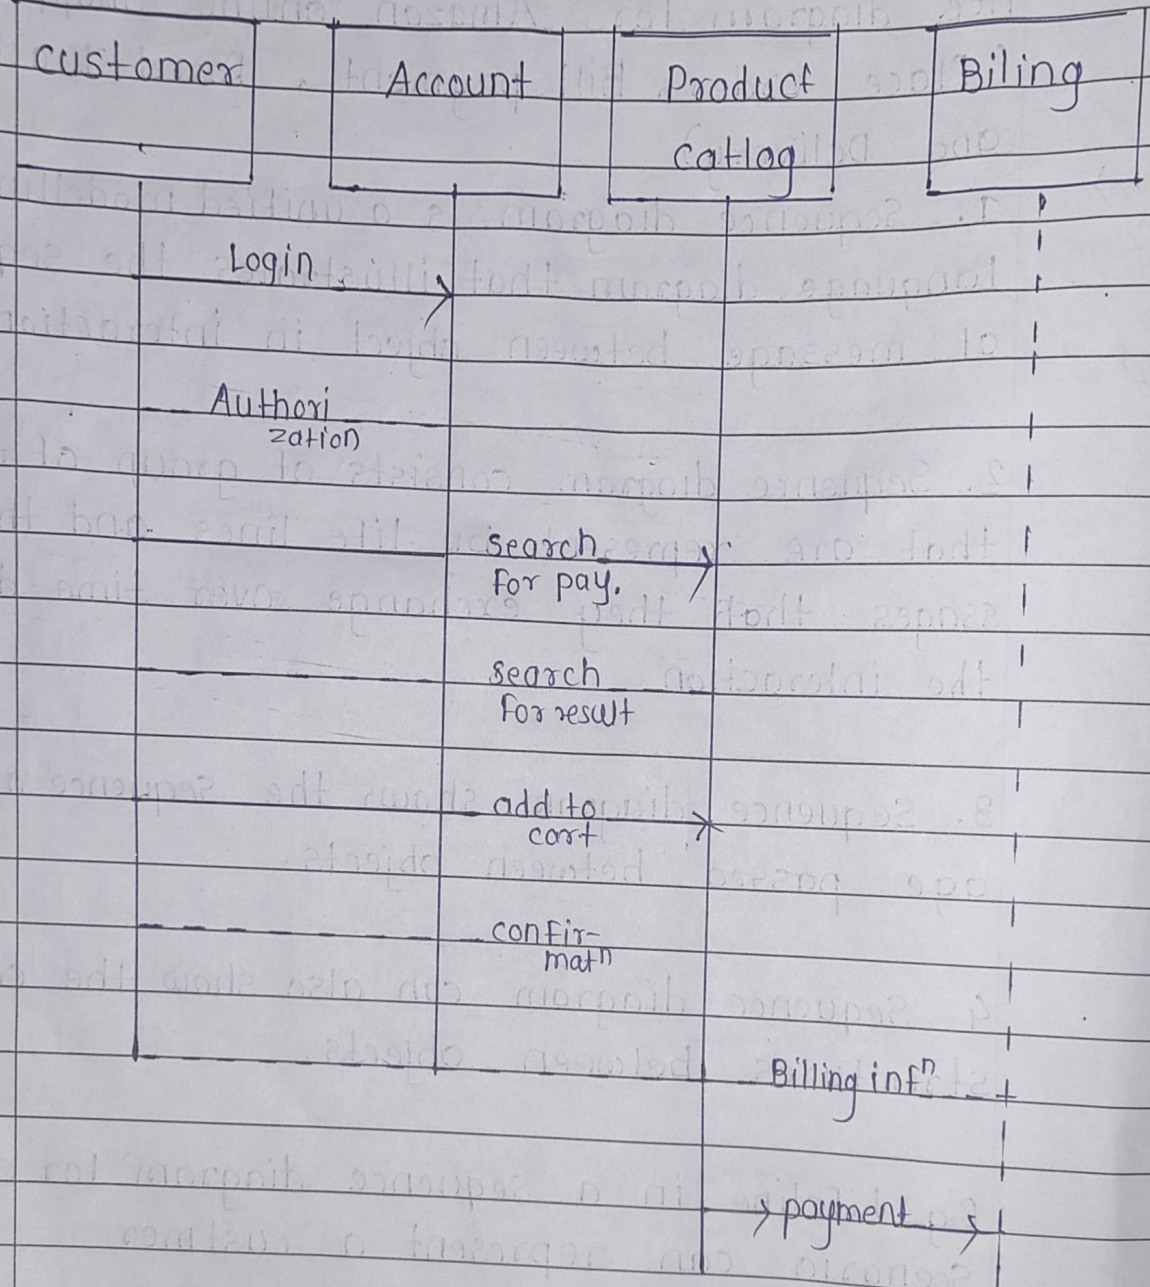 customer
Account
Product
catlog
Biling
Login
Authori
zation
search
for pay.
search
for result
add to
cart
confir-
matⁿ
Billing infⁿ
payment